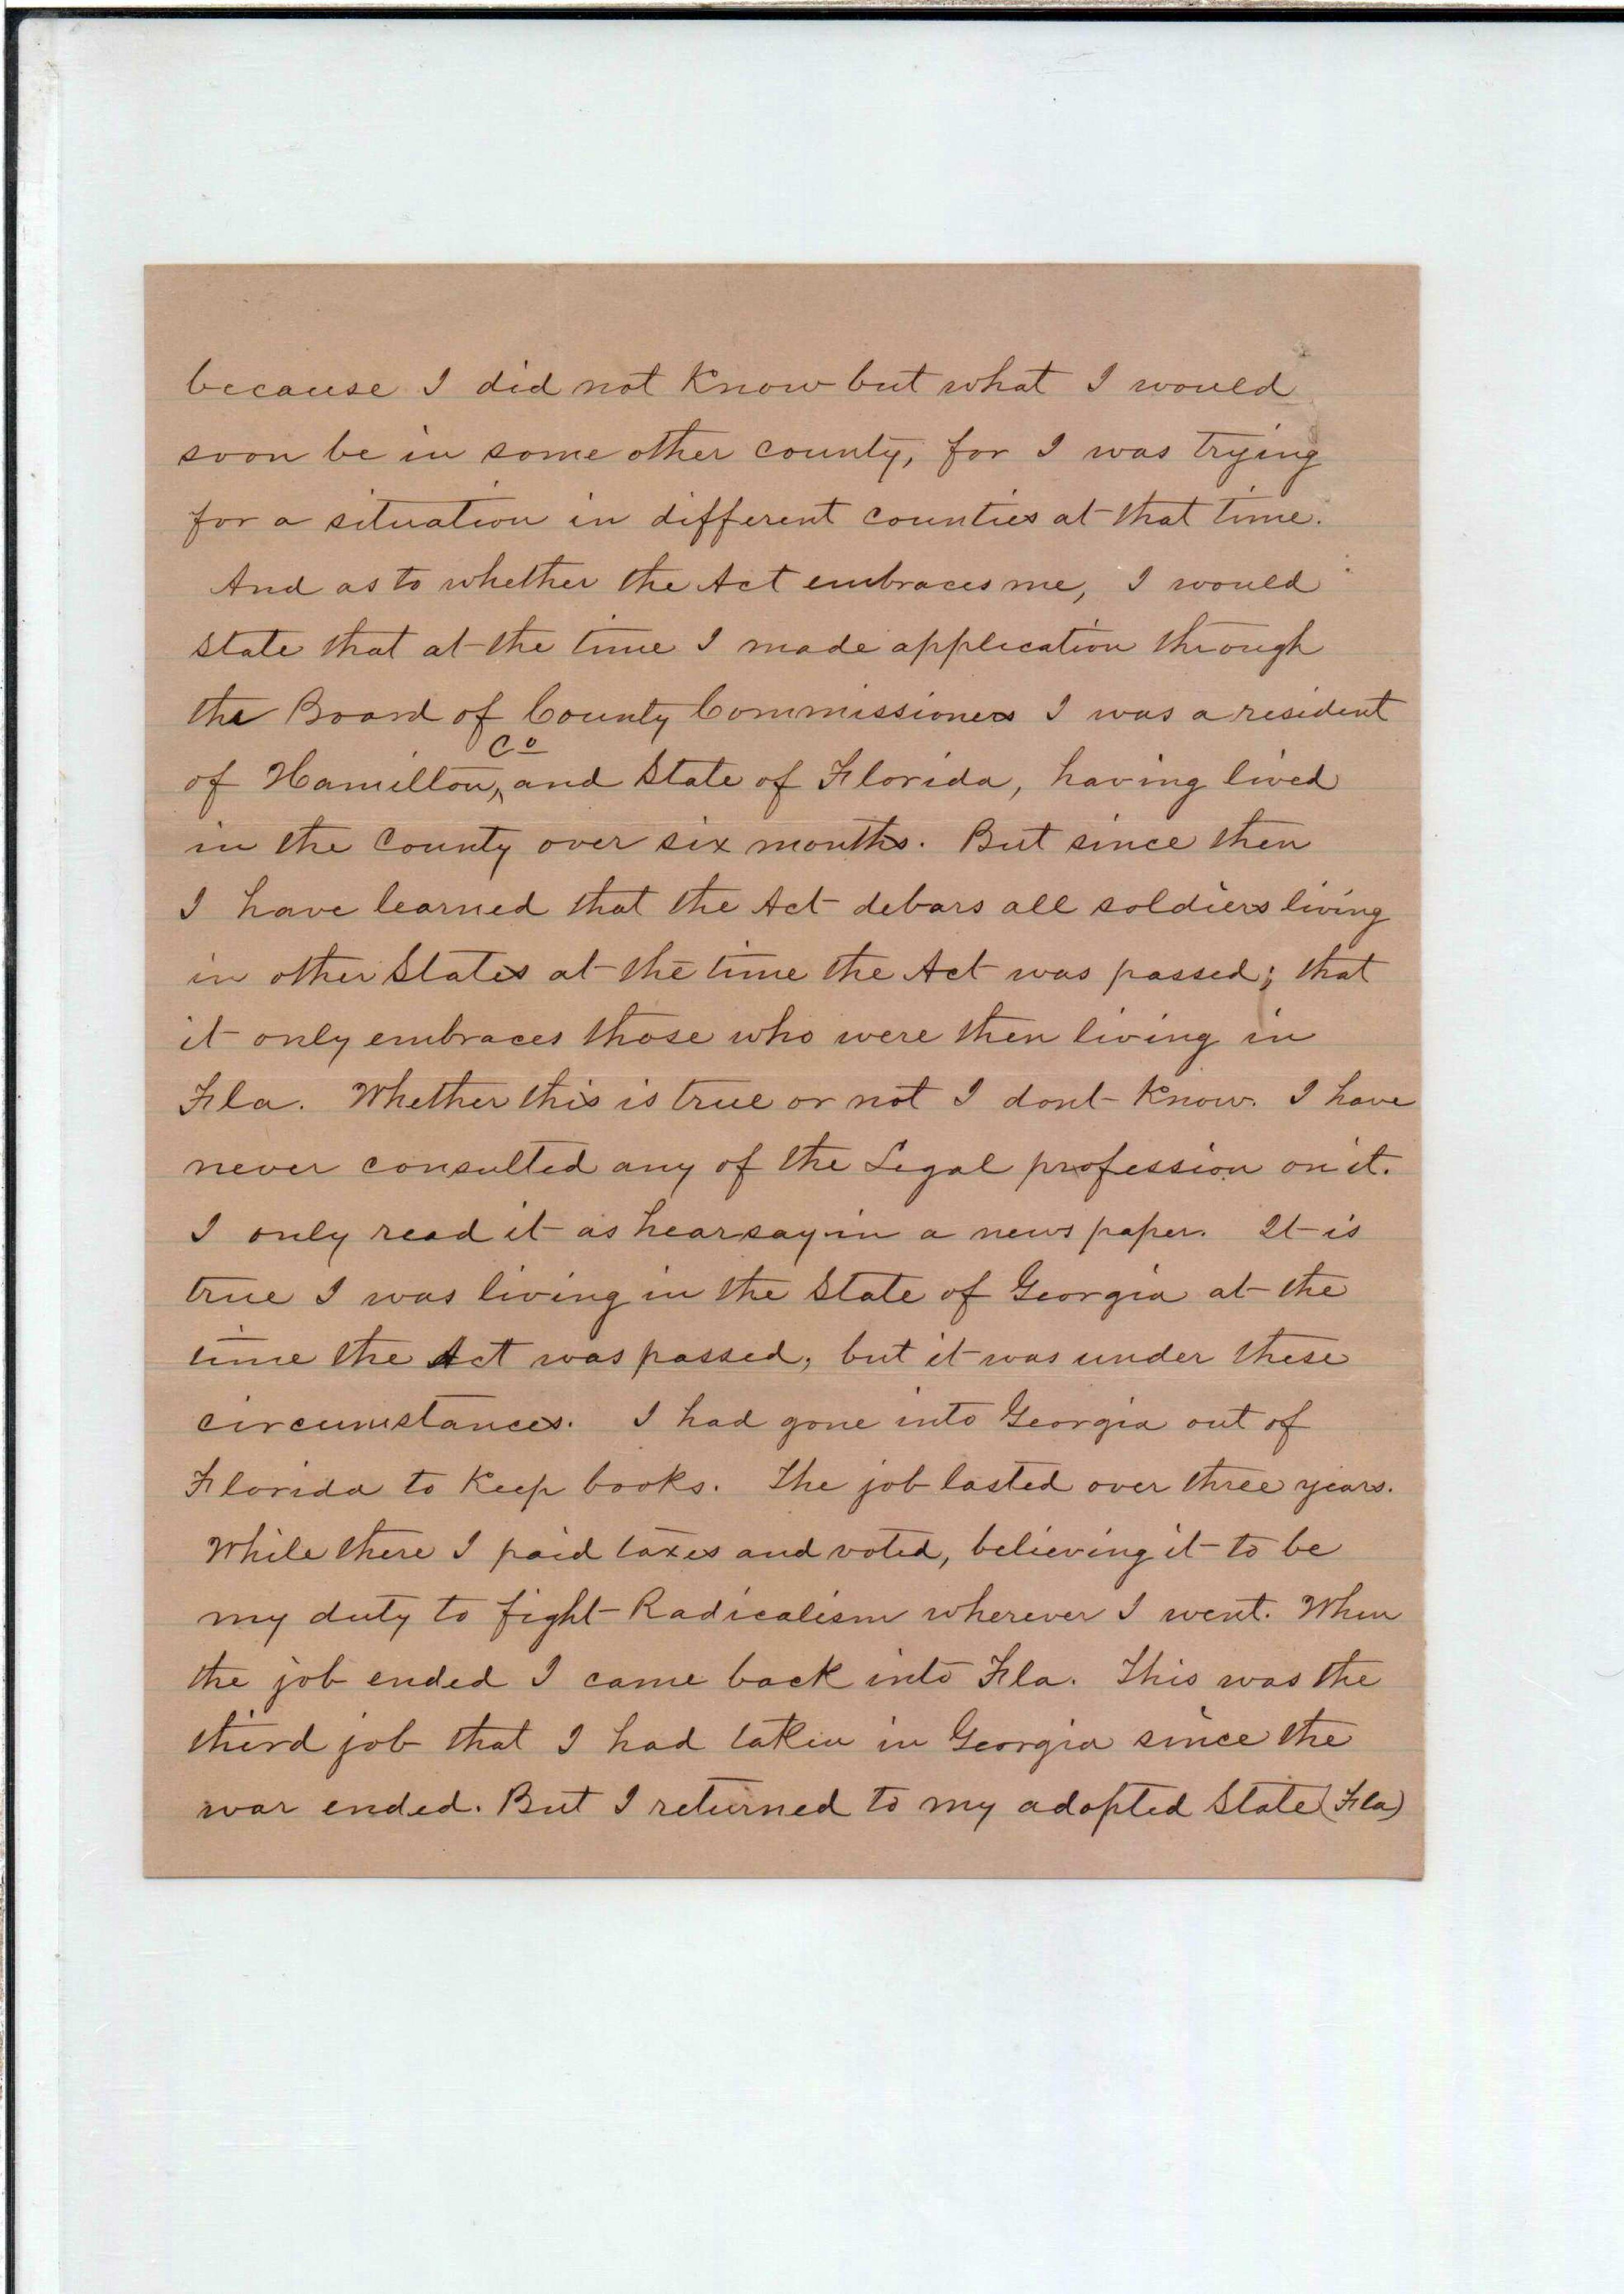 because I did not Know but what I would
soon be in some other county, for I was trying
for a situation in different counties at that time.
And as to whether the Act embraces me, I would
state that at the time I made application through
the Board of County Commissioners I was a resident
of Hamilton, Co and State of Florida, having lived
in the County over six months. But since then
I have learned that the Act debars all soldiers living
in other States at the time the Act was passed; that
it only embraces those who were then living in
Fla. Whether this is true or not I dont Know. I have
never consulted any of the Legal profession on it.
I only read it as hearsay in a news paper. It is
true I was living in the State of Georgia at the
time the Act was passed, but it was under these
circumstances. I had gone into Georgia out of
Florida to Keep books. The job lasted over three years.
While there I paid taxes and voted, believing it to be
my duty to fight Radicalism wherever I went. When
the job ended I came back into Fla. This was the
third job that I had taken in Georgia since the
war ended. But I returned to my adopted State (Fla)